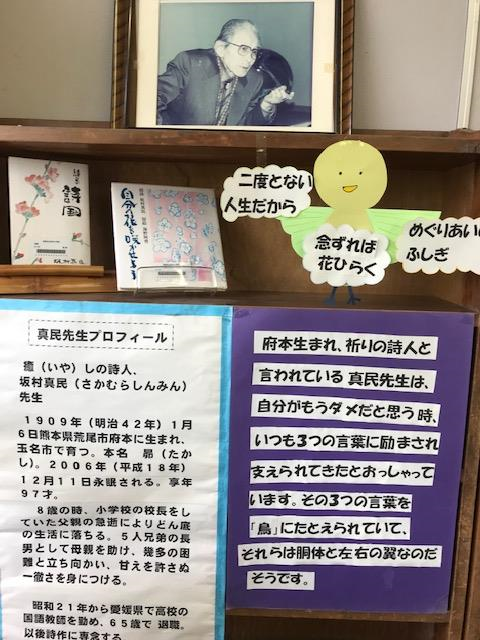 詩国
自分の花を咲かせよう
二度とない
人生だから
念ずれば
花ひらく
めぐりあい
ふしぎ
真民先生プロフィール
癒（いや）しの詩人、
坂村真民（さかむらしんみん）
先生
１９０９年（明治４２年）１月
６日熊本県荒尾市府本に生まれ、
玉名市で育つ。本名 昻（たか
し）。２００６年（平成１８年）
１２月１１日永眠される。享年
９７才。
８歳の時、小学校の校長をし
ていた父親の急逝によりどん底
の生活に落ちる。５人兄弟の長
男として母親を助け、幾多の困
難と立ち向かい、甘えを許さぬ
一徹さを身につける。
昭和２１年から愛媛県で高校の
国語教師を勤め、６５歳で退職。
以後詩作に専念する
府本生まれ、祈りの詩人と
言われている 真民先生は、
自分がもうダメだと思う時、
いつも３つの言葉に励まされ
支えられてきたとおっしゃって
います。その３つの言葉を
「鳥」にたとえられていて、
それらは胴体と左右の翼なのだ
そうです。